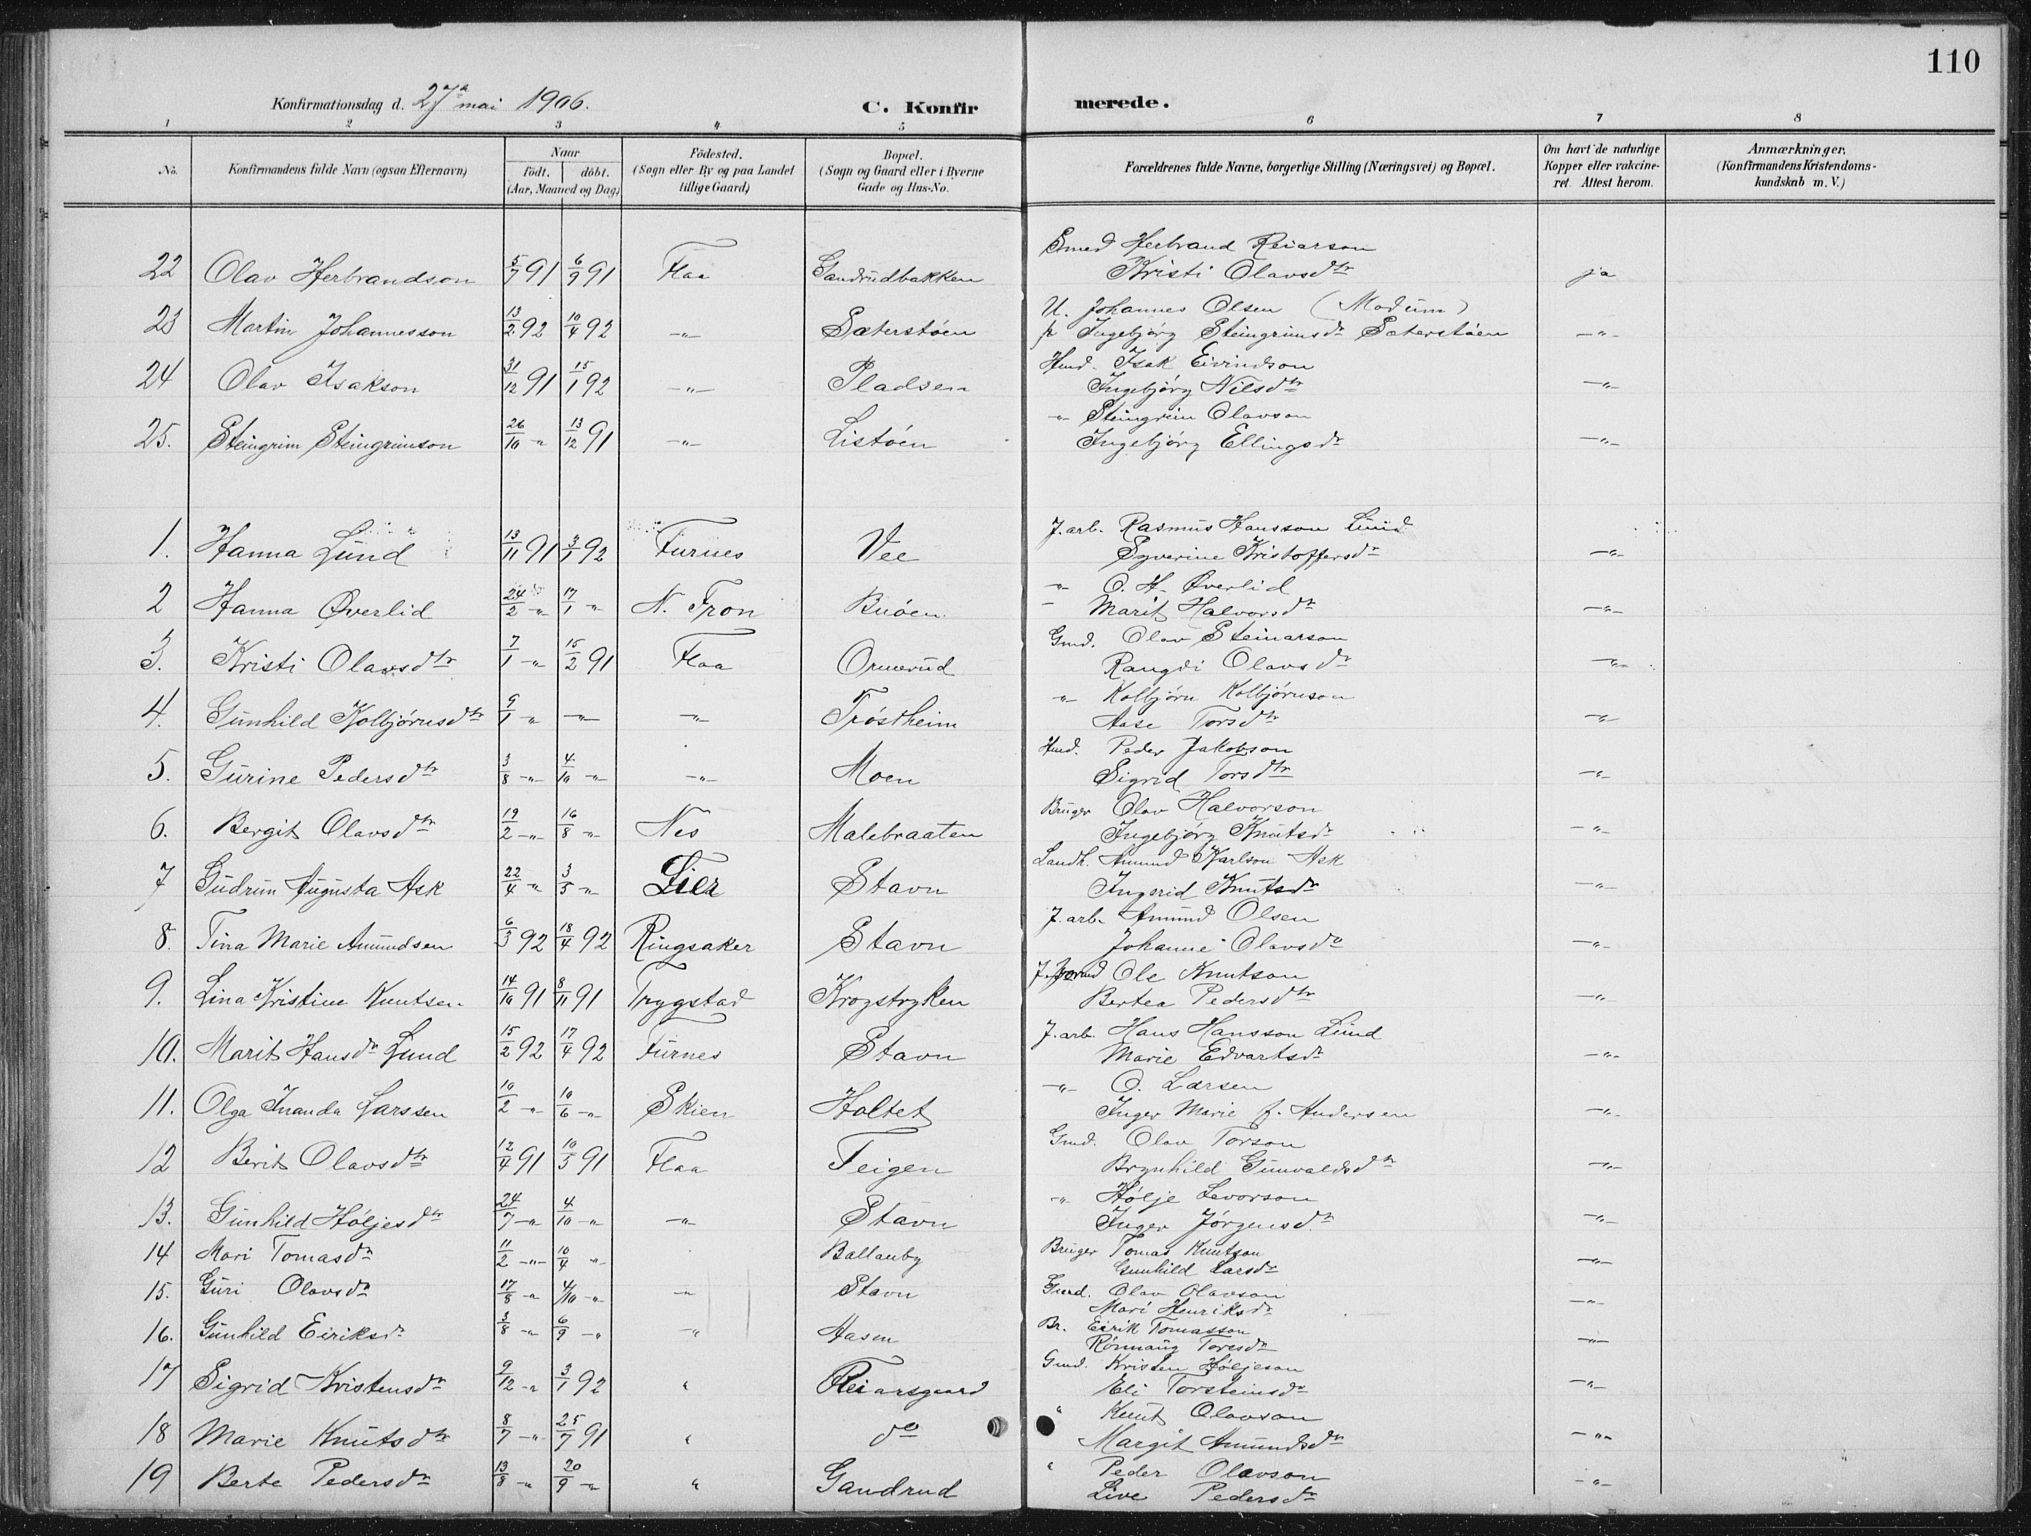 110
Konfirmationsdag d. 27de mai 1906. C. Konfirmerede.
1 2 3 4 5 6 7 8
No. Konfirmandens fulde Navn (ogsaa Efternavn) Naar födt. döbt. (Aar, Maaned og Dag) Födested. (Sogn eller By og paa Landet tillige Gaard) Bopæl. (Sogn og Gaard eller i Byerne Gade og Hus-No. Forældrenes fulde Navne, borgerlige Stilling (Næringsvei) og Bopæl. Om havt de naturlige Kopper eller vakcineret. Attest herom. Anmærkninger. (Konfirmandens Kristendomskundskab m. V.)
22 Olav Herbrandson 5/7 91 6/9 91 Flaa Gandrudbakken Smed Herbrand Reiarson
Kristi Olavsdtr ja
23 Martin Johannesson 13/2 92 10/4 92 -"- Sæterstøen U. Johannes Olsen (Modum)
p Ingebjørg Steingrimsdr Sæterstøen -"-
24 Olav Isakson 31/12 91 15/1 92 -"- Pladsen Husd. Isak Eivindson
Ingebjørg Nilsdtr -"-
25. Steingrim Steingrimson 26/10 -"- 13/12 91 -"- Listøen -"- Steingrim Olavson
Ingebjørg Ellingsdr -"-
1. Hanna Lund 13/11 91 3/1 92 Furnes Vee J. arb. Rasmus Hansson Lund
Syverine Kristoffersdr -"-
2 Hanna Øverlid 24/2 -"- 17/1 -"- N. Fron Buøen -"- O. H. Øverlid
Marit Halvorsdr -"-
3. Kristi Olavsdtr 7/1 -"- 15/2 91 Flaa Ormerud Gmd. Olav Steinarson
Rangdi Olavsdr -"-
4. Gunhild Kolbjørnsdtr 9/1 -"- -"- -"- Trøstheim -"- Kolbjørn Kolbjørnson
Aase Torsdtr -"-
5. Gurine Pedersdtr 3/8 -"- 4/10 -"- -"- Moen Husd. Peder Jakobson
Sigrid Torsdtr -"-
6. Bergit Olavsdtr 19/2 -"- 16/8 -"- Nes Malebraaten Bruger Olav Halvorson
Ingebjørg Knutsdr -"-
7 Gudrun Augusta Ask 22/4 -"- 3/5 -"- Lier Stavn Landh. Amund Karlson Ask
Ingerid Knutsdr -"-
8. Tina Marie Amundsen 6/3 92 18/4 92 Ringsaker Stavn J. arb. Amund Olsen
Johanne Olavsdr -"-
9. Lina Kristine Knutsen 14/10 91 8/11 91 Trygstad Krogstryken Ole Knutson
Bertea Pedersdtr -"-
10. Marit Hansdr Lund 15/2 92 17/4 92 Furnes Stavn J. arb. Hans Hansson Lund
Marie Edvartsdr -"-
11. Olga Inanda Larssen 10/2 -"- 10/6 -"- Skien Holtet -"- O. Larsen
Inger Marie f. Andersen -"-
12 Berit Olavsdtr 12/4 91 10/5 91 Flaa Teigen Gmd. Olav Torson
Brynhild Gunvaldsdtr -"-
13. Gunhild Høljesdtr 24/7 -"- 4/10 -"- -"- Stavn -"- Hølje Levorson
Inger Jørgensdr -"-
14 Mari Tomasdr 11/2 -"- 10/4 -"- Ballanby Bruger Tomas Knutson
Gunhild Larsdr -"-
15. Guri Olavsdr 17/8 -"- 4/10 -"- -"- Stavn Gmd. Olav Olavson
Mari Henriksdr -"-
16. Gunhild Eiriksdr 3/8 -"- 6/9 -"- -"- Aasen Br. Eirik Tomasson
Rønnaug Toresdr -"-
17 Sigrid Kristensdr 9/12 -"- 3/1 92 " Reiarsgaard Gmd. Kristen Høljeson
Eli Torsteinsdr -"-
18 Marie Knutsdtr 8/7 -"- 25/7 91 " do " Knut Olavson
Margit Amundsdr -"-
19 Berte Pedersdr 13/8 -"- 20/9 -"- " Gandrud " Peder Olavson
Live Pedersdr -"-